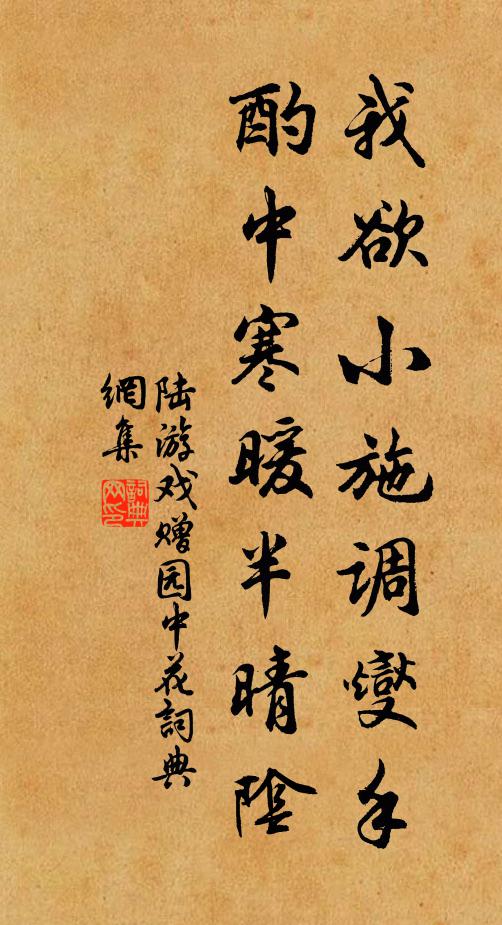 我欲小施调燮手
酌中寒暖半晴陰
陆游戏赠园中花詞典
網集
詞典网印